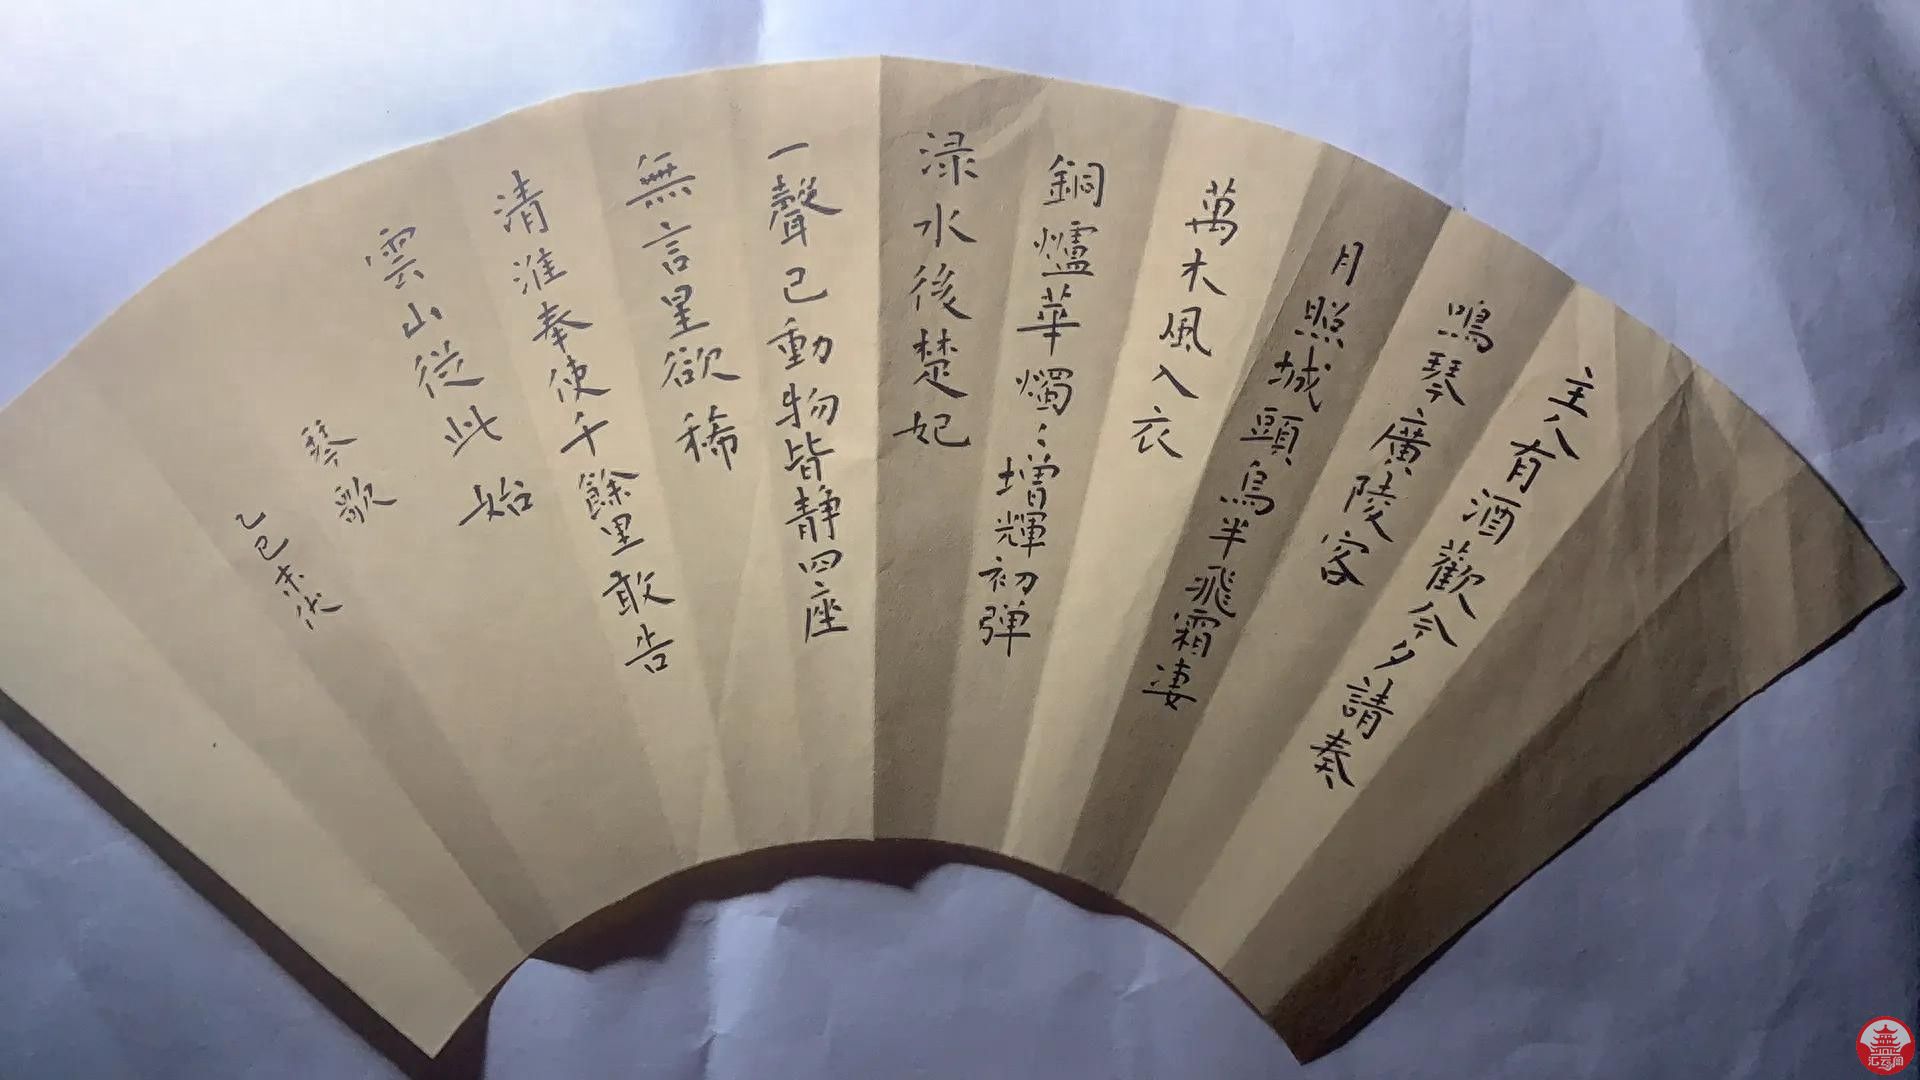 主人有酒歡今夕請奏
鳴琴廣陵客
月照城頭烏半飛霜凄
萬木風入衣
銅爐華燭〻增輝初弹
渌水後楚妃
一聲已動物皆静四座
無言星欲稀
清淮奉使千餘里敢告
雲山從此始
琴歌
乙巳末伏
汇云阁